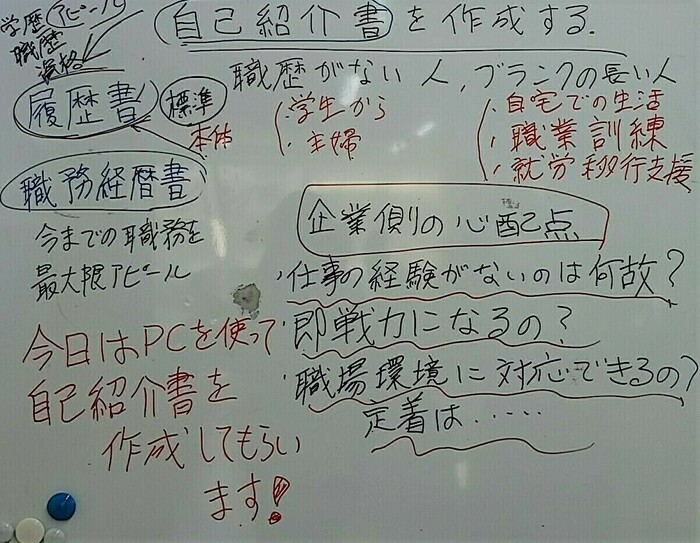 自己紹介書を作成する.
学歴
職歴
資格
アピール
履歴書
標準
本体
職務経暦書
今までの職務を
最大限アピール
職歴がない人,ブランクの長い人
・学生から
・主婦
・自宅での生活
・職業訓練
・就労移行支援
企業側の心配点
・仕事の経験がないのは何故?
・即戦力になるの?
・職場環境に対応できるの?
定着は・・・・・
今日はPCを使って
自己紹介書を
作成してもらい
ます!